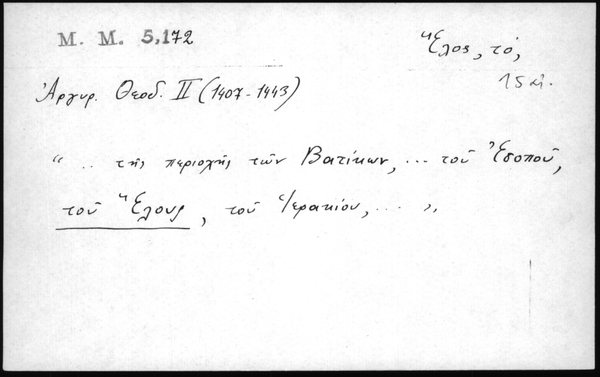 M. M. 5,172
Ἕλος, τό,
15 αἰ.
Ἀργυρ. Θεοδ. ΙΙ (1407-1443)
“ .. τῆς περιοχῆς τῶν Βατίκων, ... τοῦ Ἐσοποῦ,
τοῦ Ἕλους, τοῦ Ἱερακίου, ... „